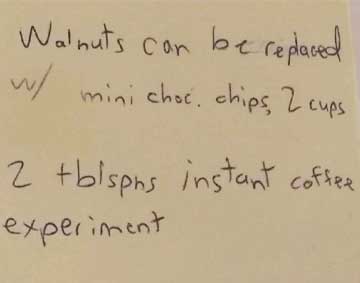 Walnuts can be replaced
w/ mini choc. chips, 2 cups
2 tblsphs instant coffee
experiment